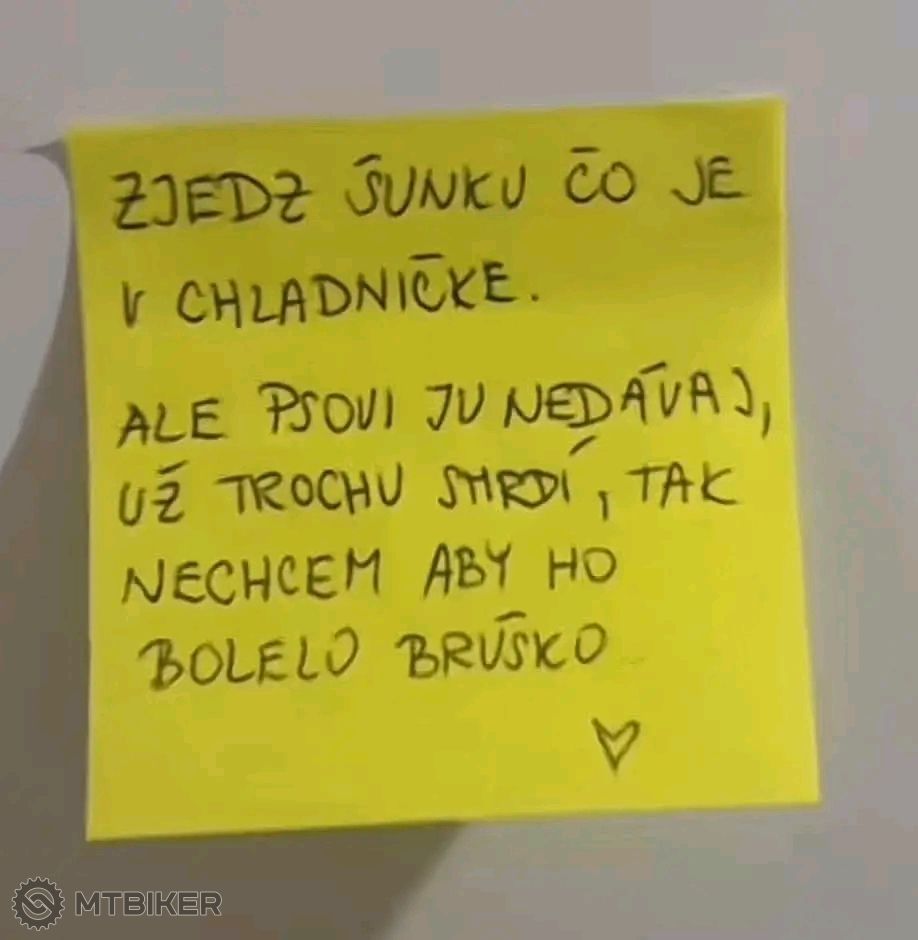 ZJEDZ ŠUNKU ČO JE
V CHLADNIČKE.
ALE PSOVI JU NEDÁVAJ,
UŽ TROCHU SMRDÍ, TAK
NECHCEM ABY HO
BOLELO BRUŠKO
♡
MTBIKER